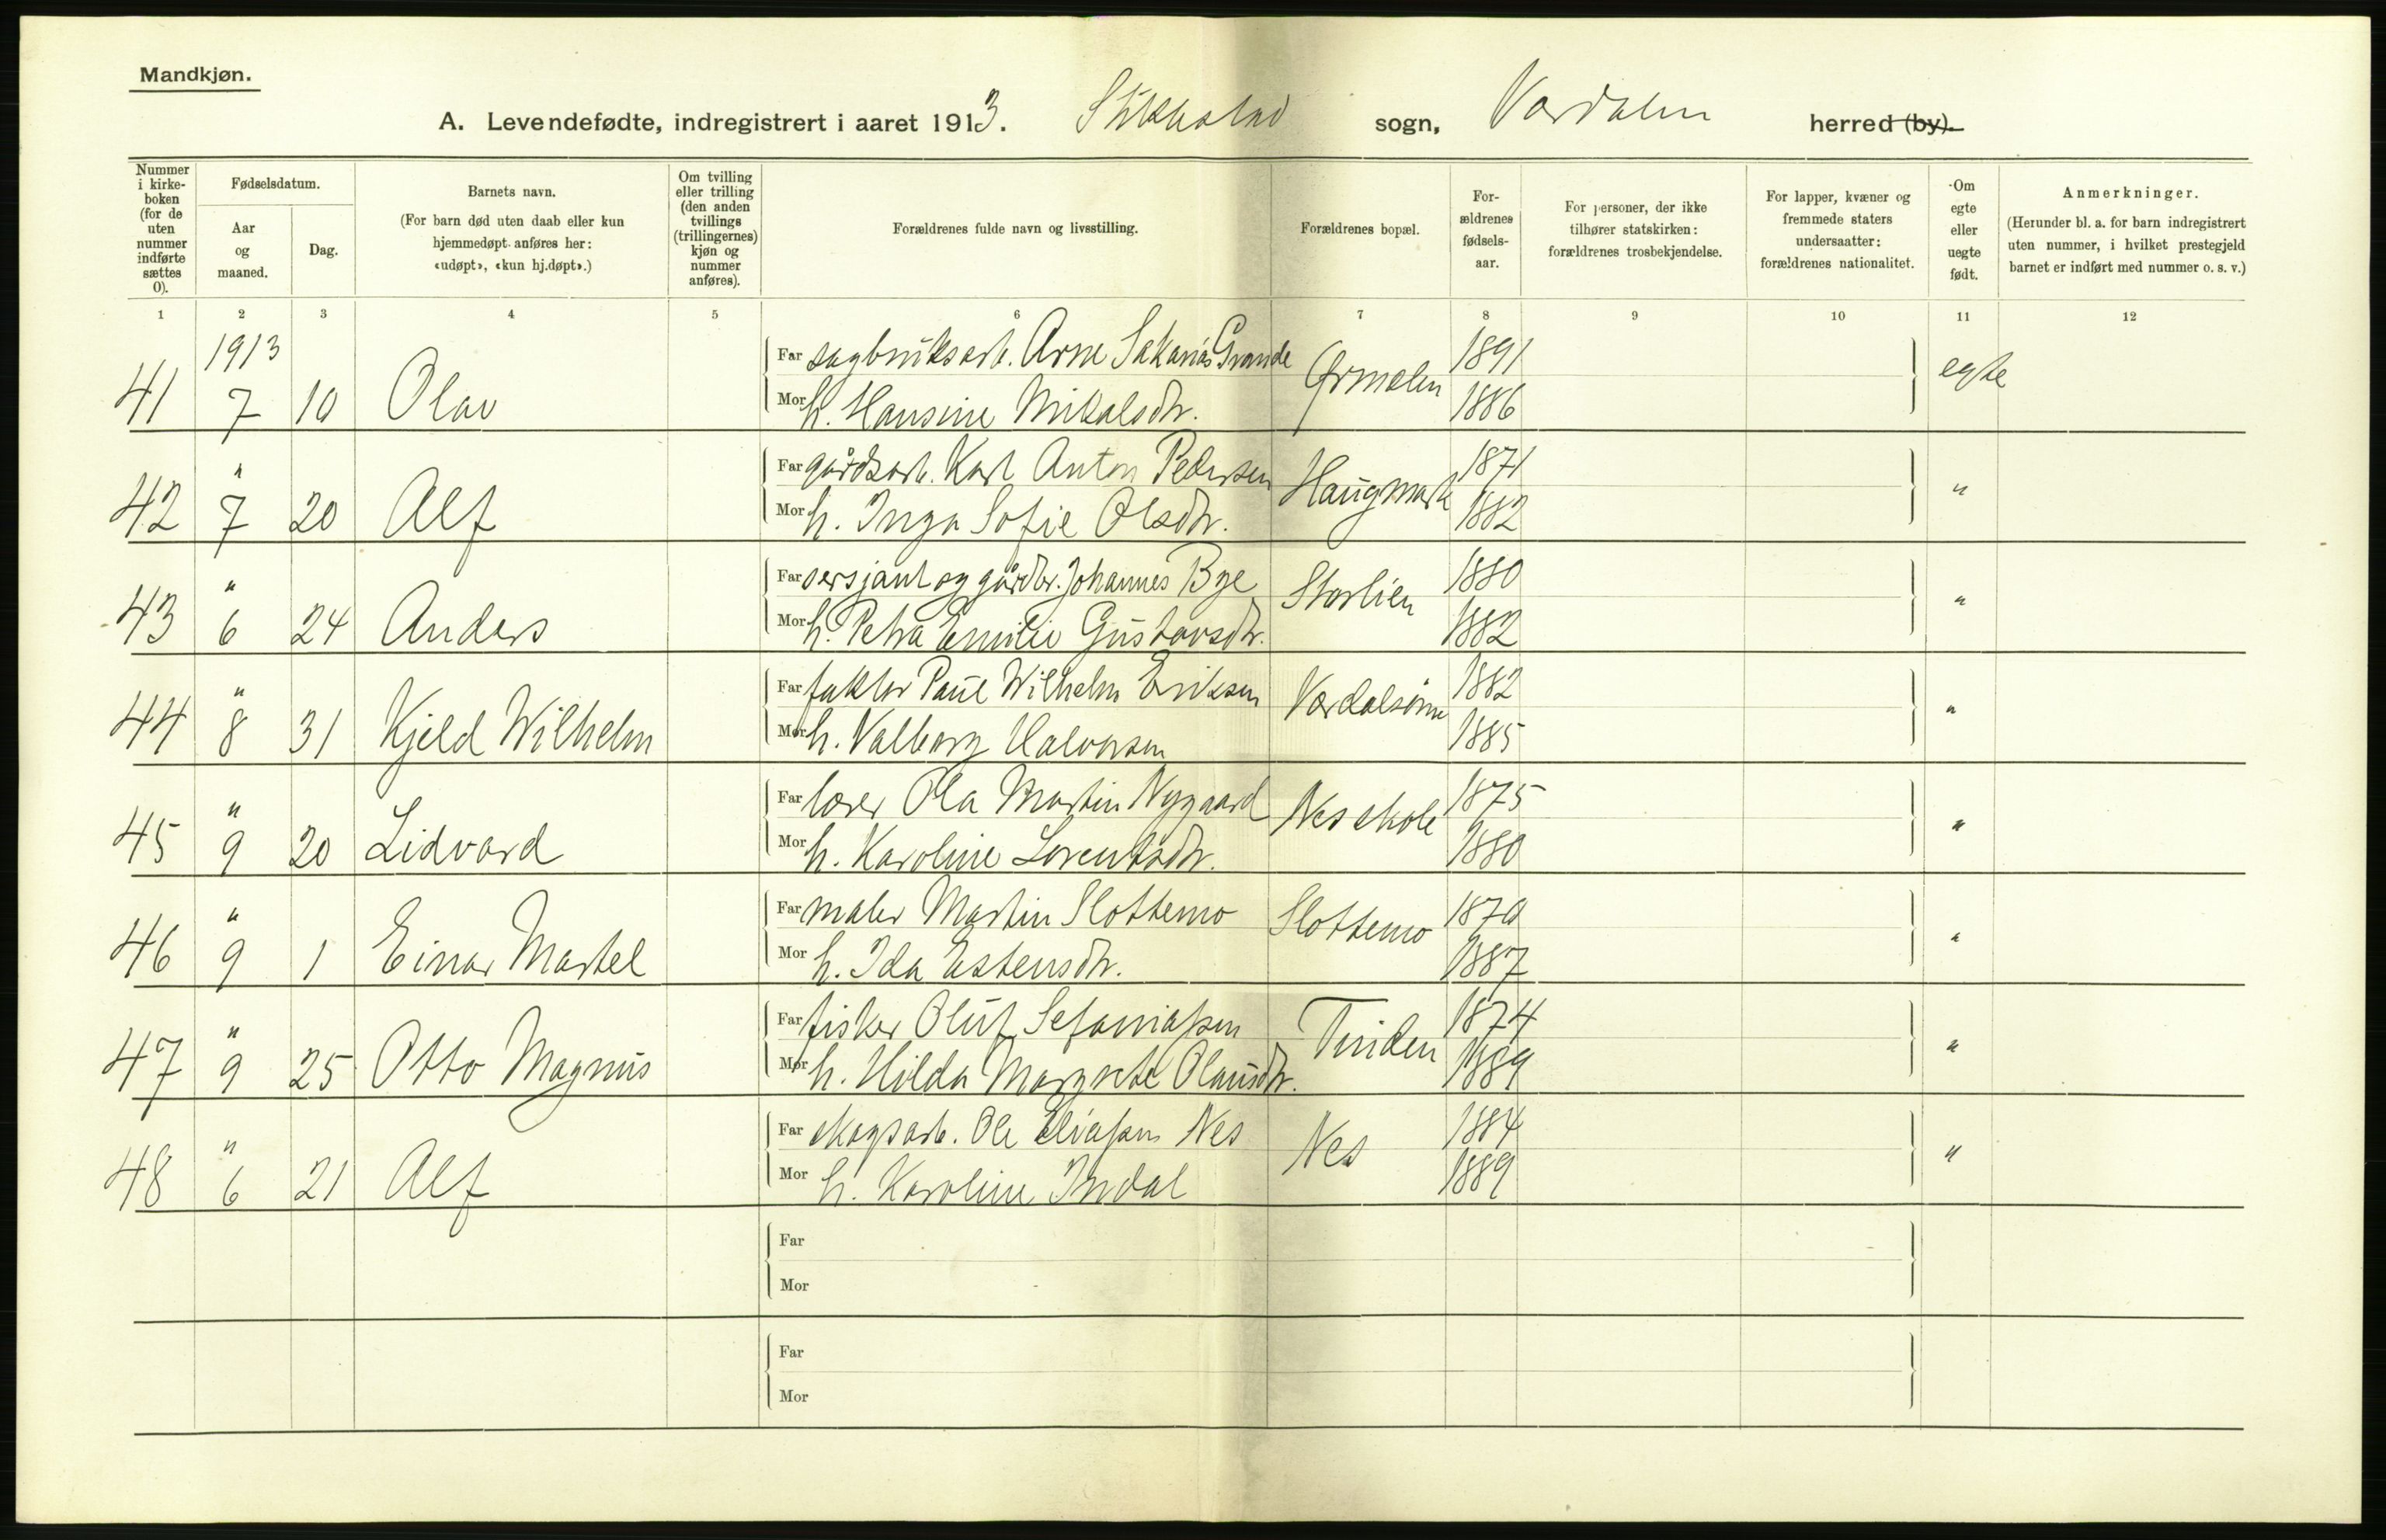 Mandkjøn.
A. Levendefødte, indregistrert i aaret 1913. Stiklestad sogn, Værdalen herred (by).
Nummer i kirke-boken (for de uten nummer indførte sættes 0).
Fødselsdatum.
Aar og maaned.
Dag.
Barnets navn.
(For barn død uten daab eller kun hjemmedøpt anføres her: «udøpt», «kun hj.døpt».)
Om tvilling eller trilling (den anden tvillings (trillingernes) kjøn og nummer anføres).
Forældrenes fulde navn og livsstilling.
Forældrenes bopæl.
For-ældrenes fødsels-aar.
For personer, der ikke tilhører statskirken: forældrenes trosbekjendelse.
For lapper, kvæner og fremmede staters undersaatter: forældrenes nationalitet.
Om egte eller uegte født.
Anmerkninger.
(Herunder bl. a. for barn indregistrert uten nummer, i hvilket prestegjeld barnet er indført med nummer o. s. v.)
1 2 3 4 5 6 7 8 9 10 11 12
1913 Far sagbruksarb. Arne Sakarias Grande Ørmelen 1891 egte
41 7 10 Olav Mor h. Hansine Mikalsdtr. 1886
" Far gårdsarb. Karl Anton Pedersen Haugmark 1871 "
42 7 20 Alf Mor h. Inga Sofie Olsdtr. 1882
" Far sersjant og gårdbr. Johannes Bye Storlien 1880 "
43 6 24 Anders Mor h. Petra Emilie Gustavsdtr. 1882
" Far faktor Paul Wilhelm Eriksen Værdalsøren 1882 "
44 8 31 Kjeld Wilhelm Mor h. Valborg Halvorsen 1885
" Far lærer Ola Martin Nygaard Nes skole 1875 "
45 9 20 Lidvard Mor h. Karoline Lorentsdtr. 1880
" Far maler Martin Slottemo Slottemo "
46 9 1 Einar Martel Mor h. Ida Estensdtr. 1887
" Far fisker Oluf Sefaniassen Tinden 1874 "
47 9 25 Otto Magnus Mor h. Hilda Margrete Olausdtr. 1889
" Far skogsarb. Ole Eliassen Nes Nes 1884 "
48 6 21 Alf Mor h. Karoline Indal 1889
Far
Mor
Far
Mor